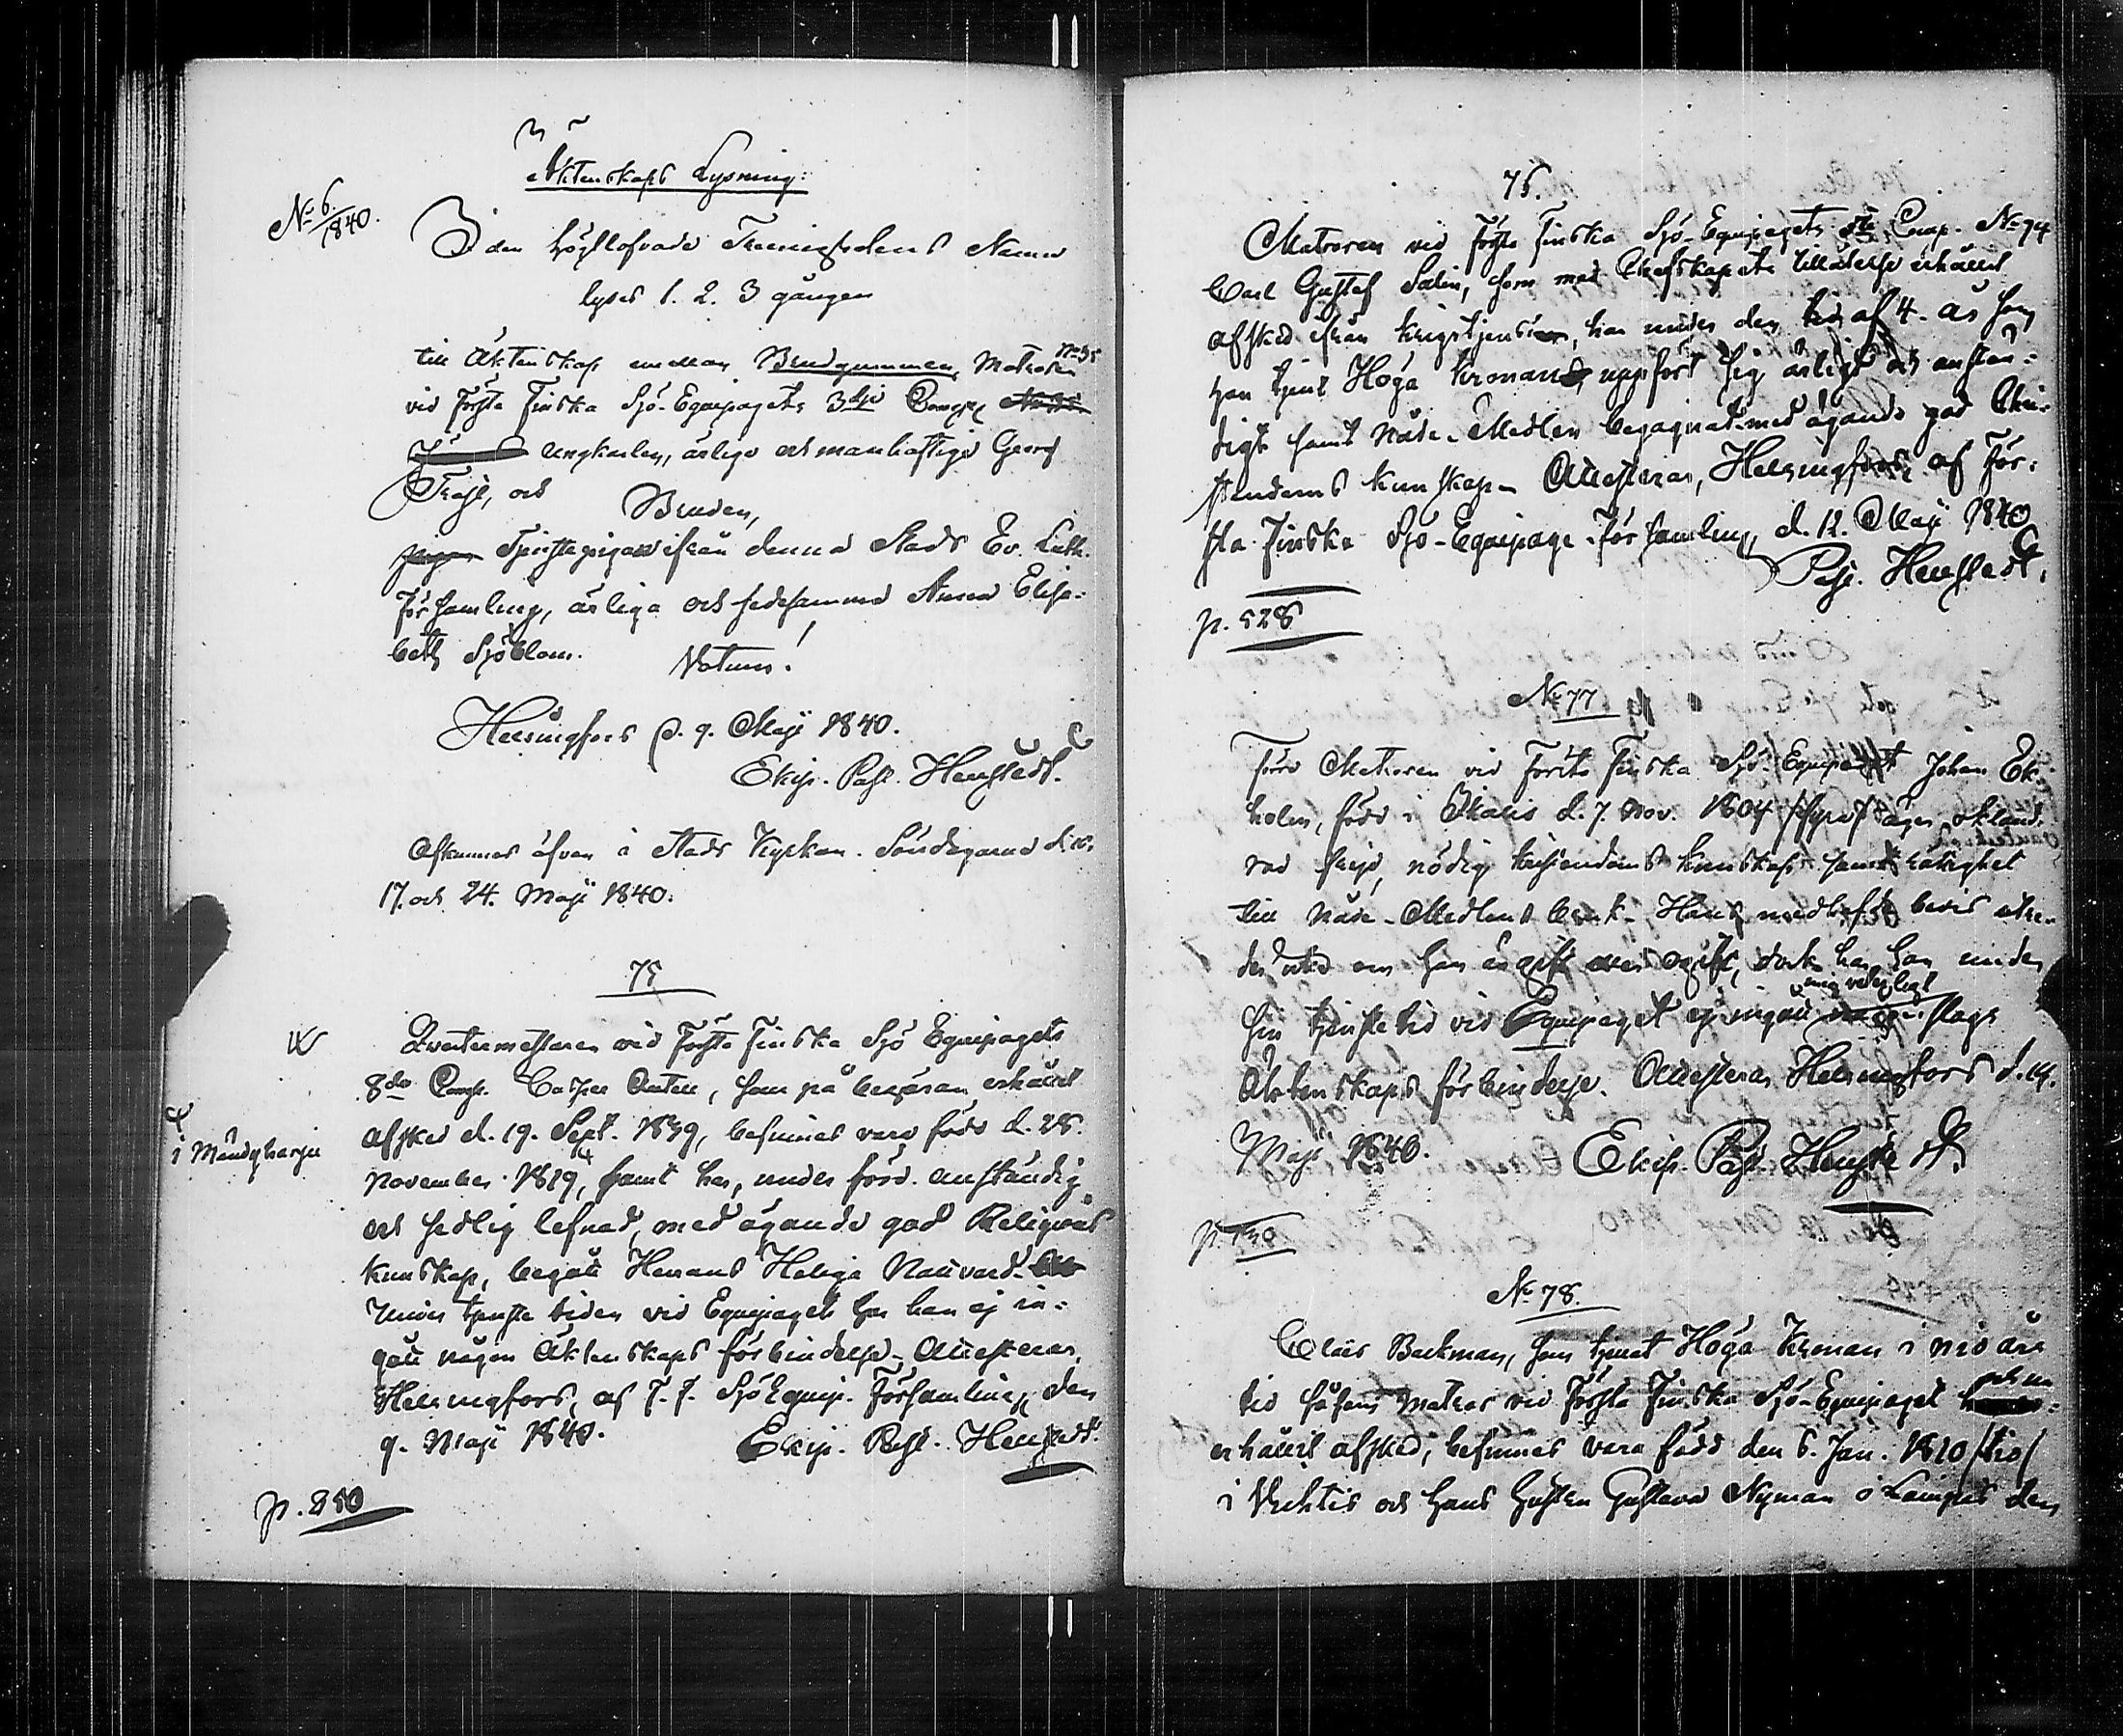 Äktenskaps Lysning:
No 6/1840.
I den höglofvade Treenighetens Namn
lyses 1. 2. 3 gången
till Äktenskap mellan Brudgummen, Matrosen No 35
vid Första Finska Sjö-Equipagets 3dje Comp.
ungkarlen, ärlige och manhaftige Georg
Trast, och
Bruden,
pigan ifrån denna Stads Ev. Luth.
Församling, ärliga och sedesamma Anna Elisa-
beth Sjöblom. Notum!
Helsingfors d. 9. Maji 1840.
Ekip. Past. Henstedt.
Afkunnas äfven i Stads Kyrkan Söndagarne d. 10.
17. och 24. Maji 1840.
75
Qvartermästaren vid Första Finska Sjö Equipagets
8de Comp. Casper Anten, som på begäran erhållit
afsked d. 19. Sept. 1839, befinnes vara född d. 28.
i Mändyharju
November 1819, samt har, under förd anständig
och sedlig lefnad, med ägande god Religions
kunskap, begått Herrans Heliga Nattvard.
Under tjenste tiden vid Equipaget har han ej in-
gått någon Äktenskaps förbindelse. Attesteras,
Helsingfors, af F. F. Sjö Equip. Församling, den
9. Maji 1840. Ekip. Past. Henstedt.
p. 250
76.
Matrosen vid Första Finska Sjö-Equipagets Comp. No 94
Carl Gustaf Salin, som med Chefskapets tillåtelse erhållit
afsked ifrån krigstjensten, har under den tid af 4. år som
han tjent Höga Kronan, uppfört sig ärligt och anstän-
digt samt Nåde-Medlen begagnat med ägande god Chri-
stendoms kunskap. Attesteras, Helsingfors, af För-
sta Finska Sjö-Equipage-Församling, d. 12. Maji 1840
Past. Henstedt.
p. 528
No 77
Förre Matrosen vid Första Finska Sjö-Equipaget Johan Ek-
holm, född i Ikalis d. 7. Nov. 1804 /fyra/ äger okland-
rad frejd, nödig kristendoms kunskap samt rätighet
till Nåde-Medlens bruk. Hans medhafde bevis utre-
der icke om han är gift eller ogift, dock har han under
sin tjenstetid vid Equipaget ej ingått slags
Äktenskaps förbindelse. Attesteras Helsingfors d. 14.
Maji 1840. Ekip. Past. Henstedt.
p. 130
No 78.
Claës Backman, som tjenat Höga Kronan i nio års
tid såsom Matros vid Första Finska Sjö-Equipaget och nu
erhållit afsked, befinnes vara född den 6. Jan. 1810 /tio/
i Vichtis och hans hustru Gustava Nyman i Lampis den